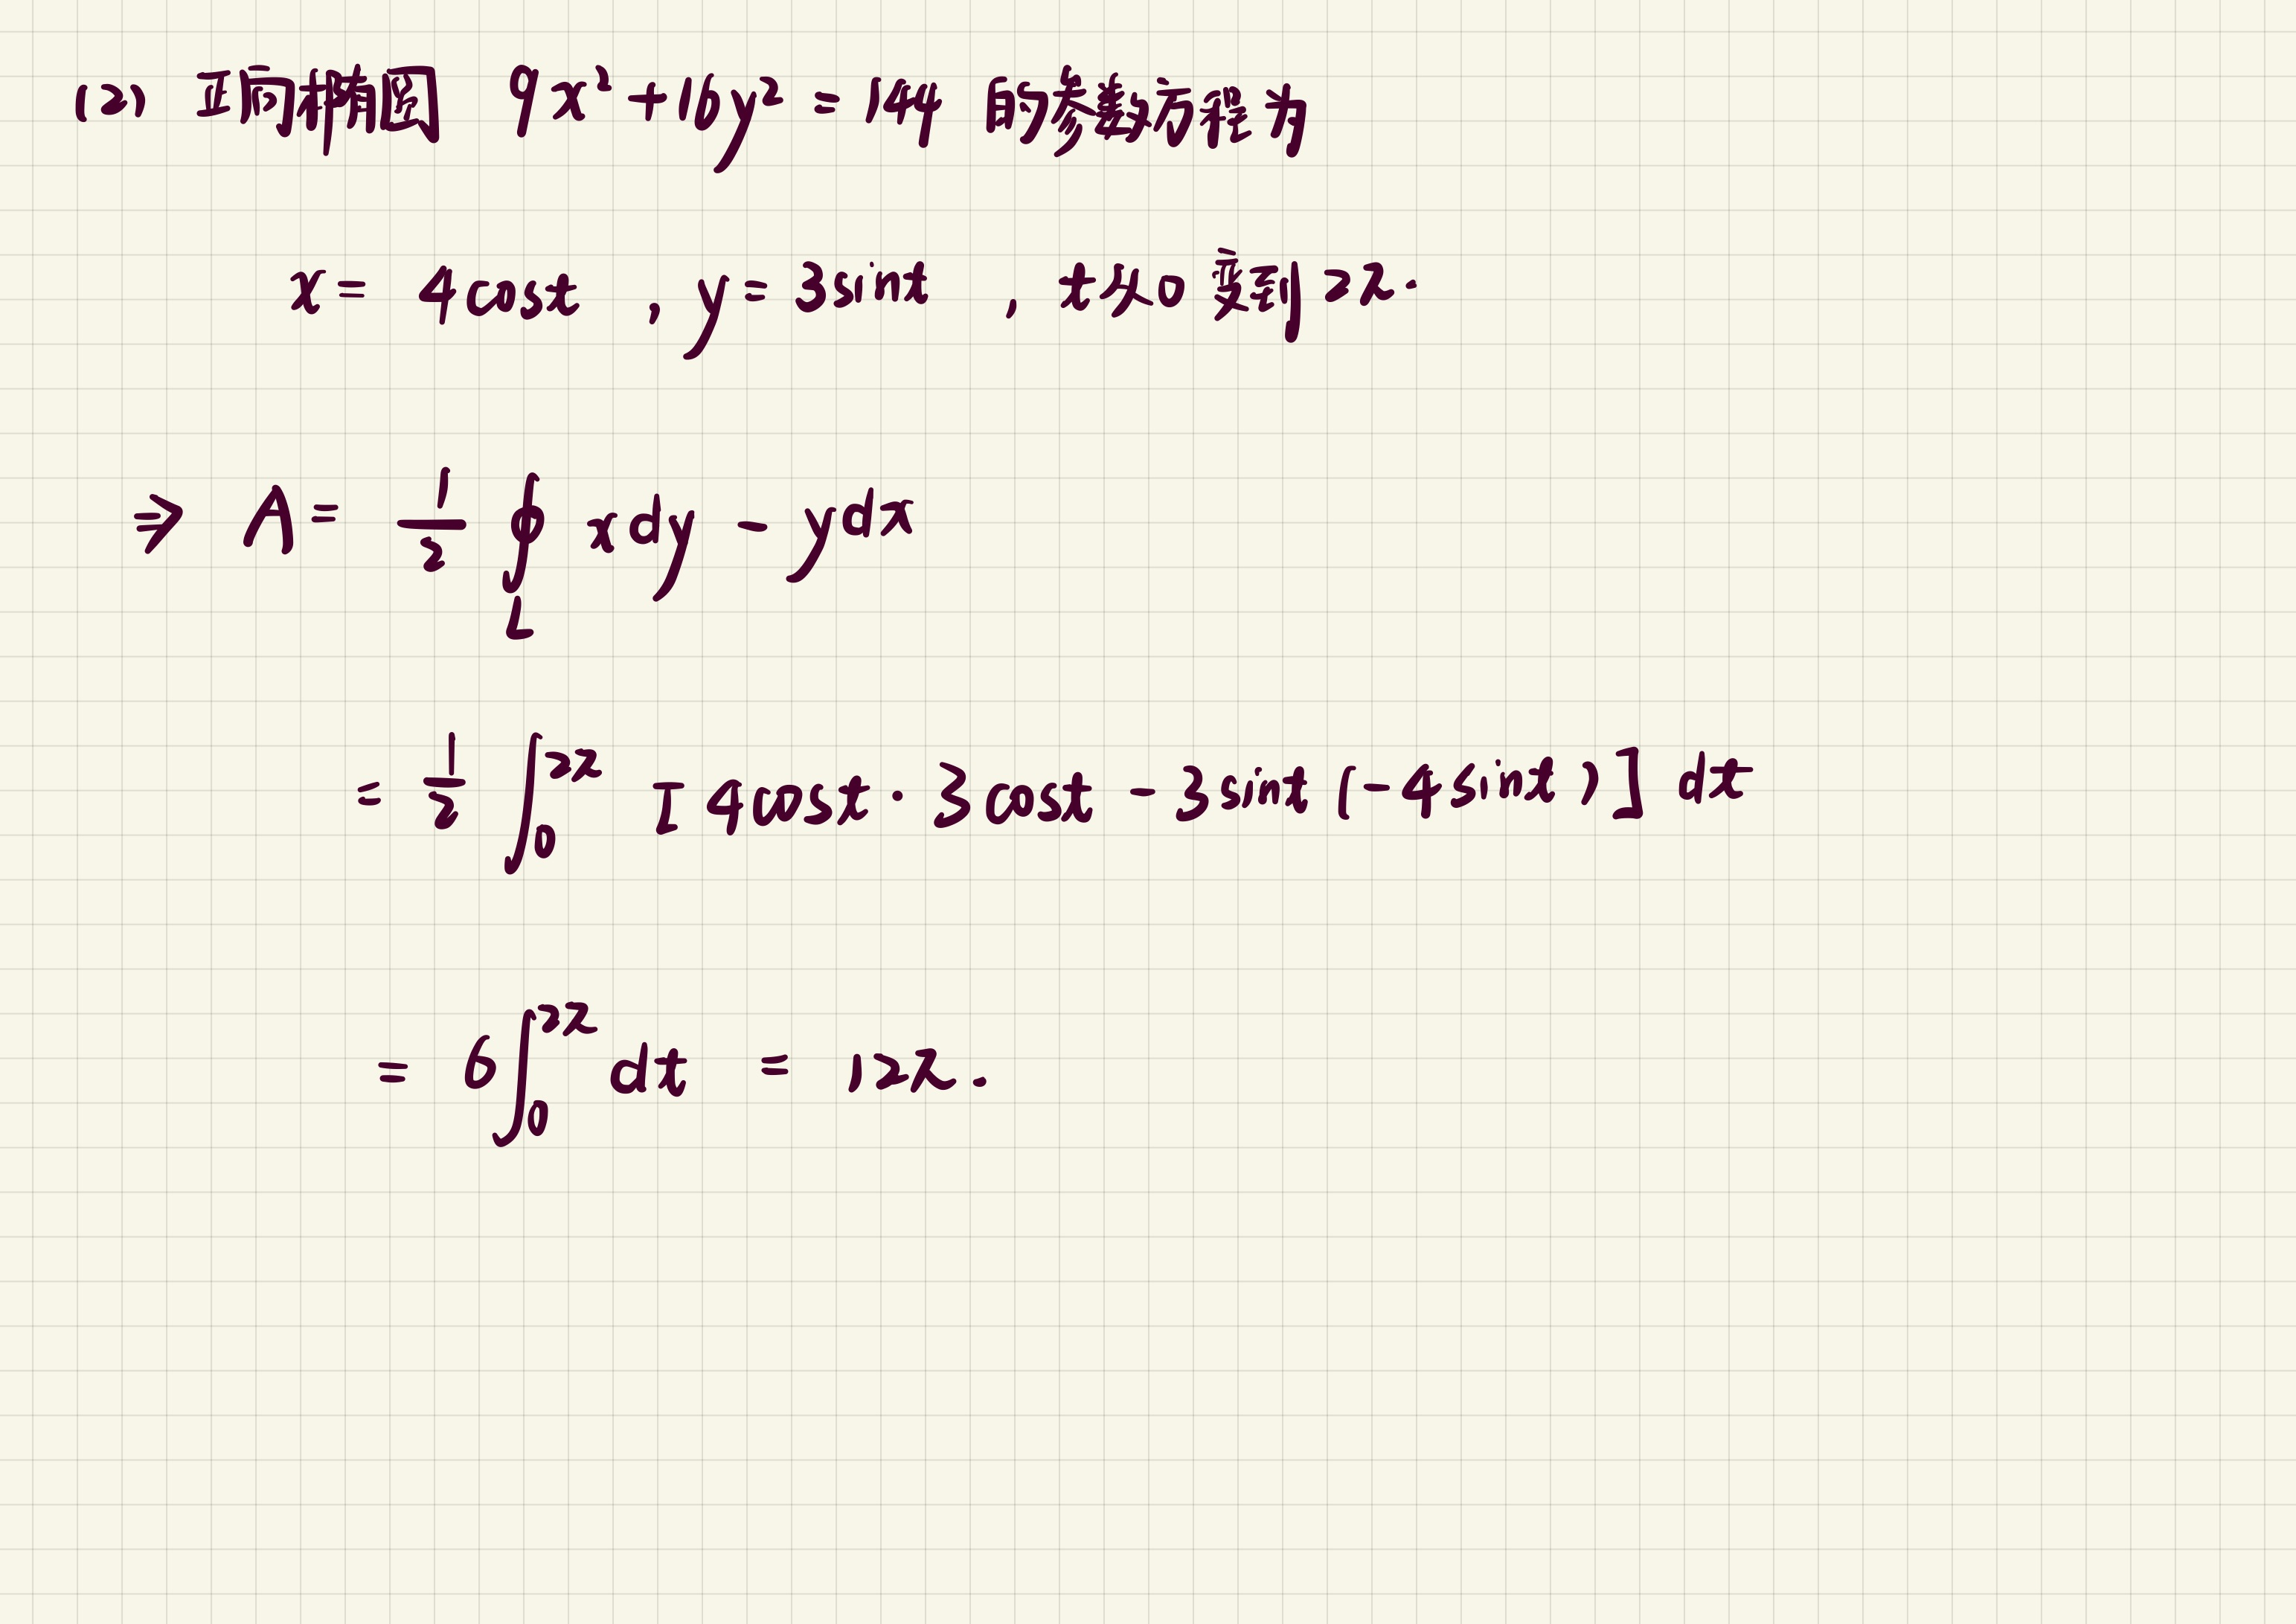 (2) 正向椭圆 9x²+16y²=144 的参数方程为
x= 4cost , y=3sint , t从0变到2π.
⇒ A= 1/2 ∮_L xdy - ydx
= 1/2 ∫_0^{2π} [4cost·3cost-3sint(-4sint)] dt
= 6∫_0^{2π} dt = 12π.